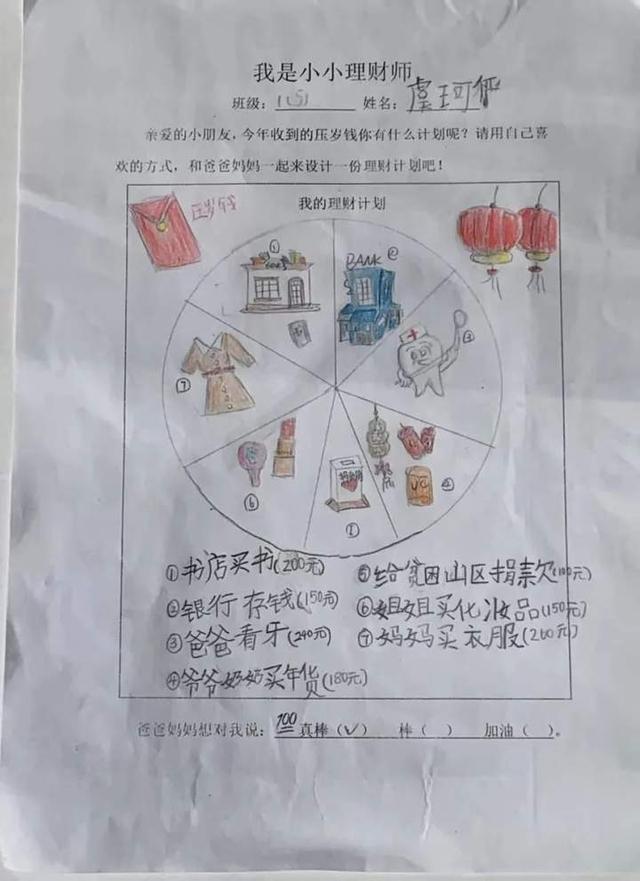 我是小小理财师
班级：1(5) 姓名：虞珂
亲爱的小朋友，今年收到的压岁钱你有什么计划呢？请用自己喜
欢的方式，和爸爸妈妈一起来设计一份理财计划吧！
压岁钱
我的理财计划
①
BANK ②
③
⑦
④
⑥
⑤
①书店买书(200元)
②银行存钱(150元)
③爸爸看牙(240元)
④爷爷奶奶买年货(180元)
⑤给贫困山区捐款(100元)
⑥姐姐买化妆品(150元)
⑦妈妈买衣服(260元)
爸爸妈妈想对我说：100 真棒（√） 棒（ ） 加油（ ）。